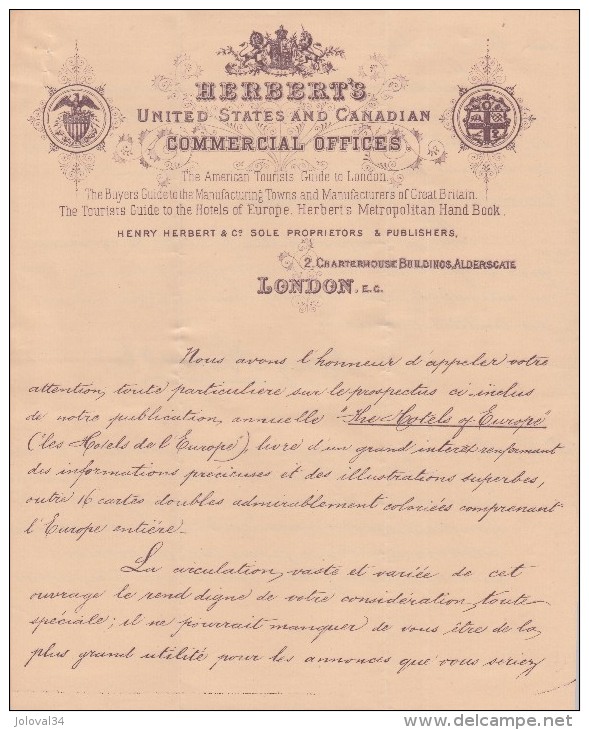 HERBERT'S
UNITED STATES AND CANADIAN
COMMERCIAL OFFICES
The American Tourists Guide to London.
The Buyers Guide to the Manufacturing Towns and Manufacturers of Great Britain.
The Tourists Guide to the Hotels of Europe. Herbert's Metropolitan Hand Book.
HENRY HERBERT & Co. SOLE PROPRIETORS & PUBLISHERS,
2, CHARTERHOUSE BUILDINGS, ALDERSGATE
LONDON, E.C.
Nous avons l'honneur d'appeler votre
attention, toute particulière sur le prospectus ci-inclus
de notre publication, annuelle "The Hotels of Europe"
("les Hotels de l'Europe"), livre d'un grand interêt renfermant
des informations précieuses et des illustrations superbes,
outre 16 cartes doubles admirablement coloriées comprenant
l'Europe entière.
La circulation, vaste et variée de cet
ouvrage le rend digne de votre considération, toute
spéciale; il ne pourrait manquer de vous être de la
plus grand utilité pour les annonces que vous seriez
joloval34
www.delcampe.net